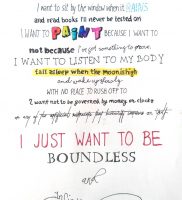 I want to sit by the window when it RAINS
and read books I'll never be tested on
I WANT TO PAINT BECAUSE I WANT TO
not because I've got something to prove
I WANT TO LISTEN TO MY BODY
fall asleep when the Moon is high
and wake up slowly
WITH NO PLACE TO RUSH OFF TO
I want not to be governed by money or clocks
or any of
I JUST WANT TO BE
BOUNDLESS
and